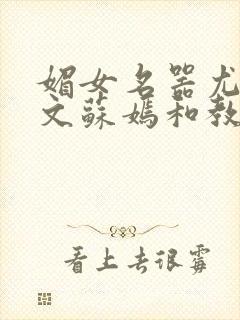 媚女名器尤
文蘇媽和教
看上去很霉